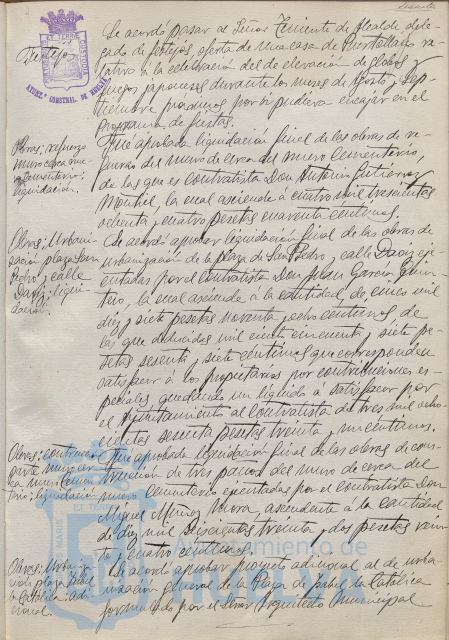 Se acordó pasar al Señor Teniente de Alcalde, dele-
gado de festejos, oferta de una casa de Puertollano re-
lativo a la celebración del de elevación de globos y
juegos japoneses durante los meses de Agosto y Sep-
tiembre próximos por si pudiera encajar en el
programa de fiestas.
Festejos
Obras; refuerzo
muro cerca nue-
vo cementerio;
liquidación.
Fue aprobada liquidación final de las obras de re-
fuerzo del muro de cerca del nuevo Cementerio,
de las que es contratista Don Antonio Gutierrez
Montiel, la cual asciende á cuatro mil trescientas
ochenta y cuatro pesetas cuarenta céntimos.
Obras; Urbani-
zación plaza San
Pedro y calle
Daoiz; liqui-
dación.
Se acordó aprobar liquidación final de las obras de
urbanización de la plaza de San Pedro y calle Daoiz eje-
cutadas por el contratista Don Juan García
la cual asciende á la cantidad de cinco mil
diez y siete pesetas noventa y ocho céntimos de
las que deducidas mil ciento cincuenta y siete pe-
setas sesenta y siete céntimos que corresponden
satisfacer á los propietarios por contribuciones es-
peciales quedando un líquido á satisfacer por
el Ayuntamiento al contratista de tres mil ocho-
cientas sesenta pesetas treinta y un céntimos.
Obras; construcción
parte muro cer-
ca nuevo cemen-
terio; liquidación
Fue aprobada liquidación final de las obras de cons-
trucción de tres paños del muro de cerca del
nuevo cementerio ejecutadas por el contratista Don
Miguel Muñoz Mora, ascendente á la cantidad
de diez mil seiscientas treinta y dos pesetas vein-
te y cuatro céntimos.
Obras; Urbani-
zación plaza Isabel
la Católica; adi-
cional.
Se acordó aprobar proyecto adicional al de urba-
nización general de la Plaza de Isabel la Católica
formulado por el Señor Arquitecto Municipal
AYUNT. CONSTNAL. DE HUELVA
Ayuntamiento de
HUELVA